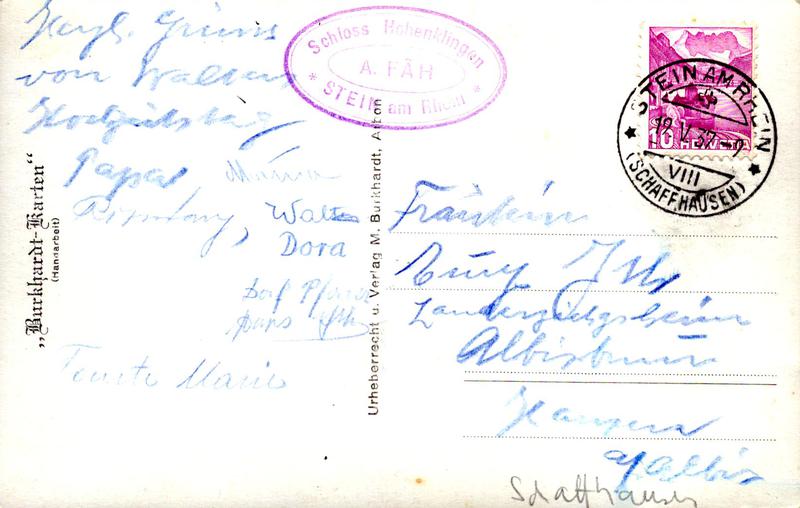 Herzl. Grüsse
von Walters
Hochzeitstag
Papa Mama
Walter
Dora
Tante Marie
„Burkhardt-Karten“
(Handarbeit)
Schloss Hohenklingen
A. FÄH
* STEIN am Rhein *
Urheberrecht u. Verlag M. Burkhardt, Arbon
10 HELVETIA
* STEIN AM RHEIN *
VIII
(SCHAFFHAUSEN)
Fräulein
Landerziehungsheim
Albisbrunn
Hausen
a/Albis
Schaffhausen